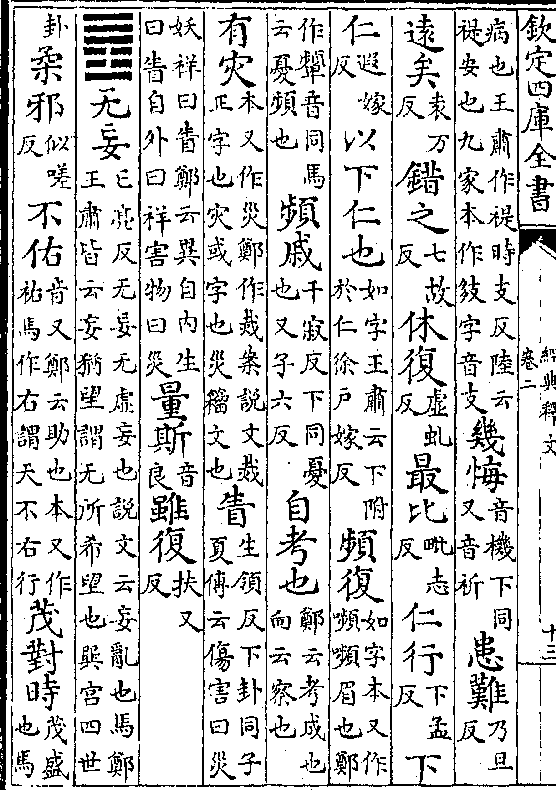 欽定四庫全書 經典釋文 卷二 十三
病也王肅作禔時支反陸云禔安也九家本作𢻃字音支幾悔音機下同又音祈患難乃旦反
遠矣袁万反錯之七故反休復虛虬反最比毗志反仁行下孟反下
仁遐嫁反以下仁也如字王肅云下附於仁徐戶嫁反頻復如字本又作嚬嚬眉也鄭
作顰音同馬云憂頻也頻戚千寂反下同憂也又子六反自考也鄭云考成也向云察也
有灾本又作災鄭作烖案説文烖正字也灾或字也災籀文也眚生領反下卦同子夏傳云傷害曰災
妖祥曰眚鄭云異自内生曰眚自外曰祥害物曰災量斯音良雖復扶又反
䷘无妄亡亮反无妄无虛妄也説文云妄亂也馬鄭王肅皆云妄猶望謂无所希望也巽宫四世
卦柔邪似嗟反不佑音又鄭云助也本又作祐馬作右謂天不右行茂對時茂盛也馬